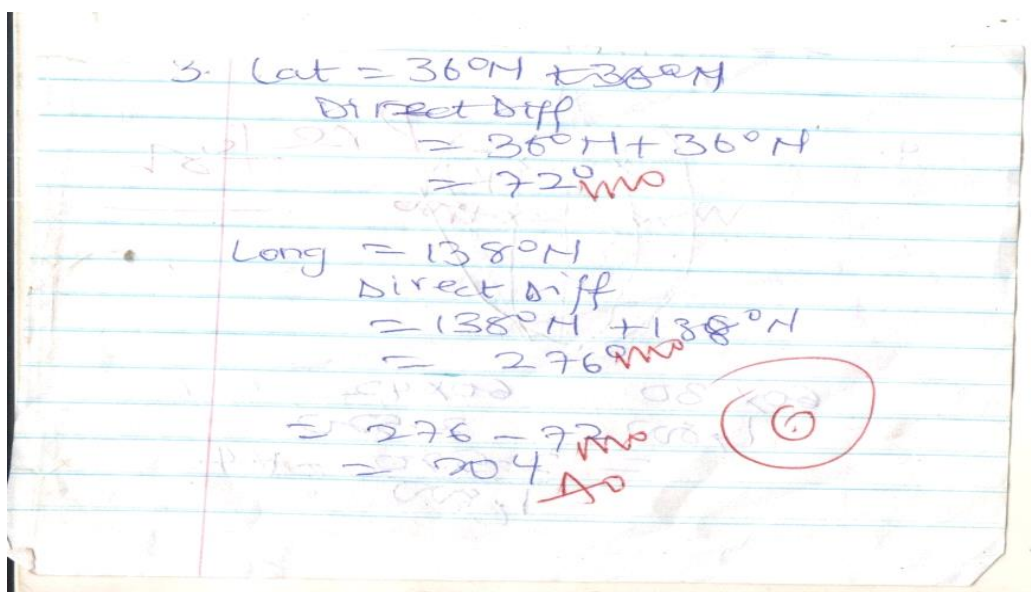 3. Lat = 36°N
Direct Diff
= 36°N + 36°N
= 72° M0
Long = 138°N
Direct Diff
= 138°N + 138°N
= 276° M0
= 276 - 72 M0
= 204 A0
0